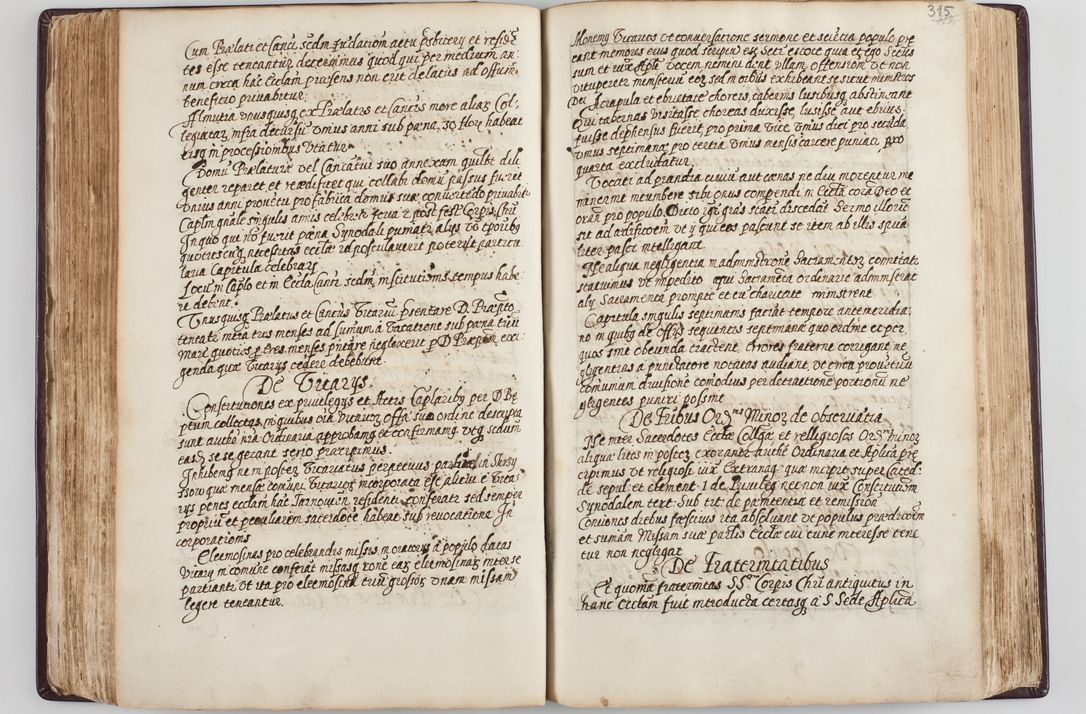 Cum Prælati et Canci scdm fudationem aetu pshiterij et residē
tes esse teneantur decernimus quod qui per medium an:
num circa hac Ecclam præsens non erit delatus ad offium
beneficio priuabitur.
Almutia vnusquisq ex Prælatis et Cancis more aliaz Col:
legiataz infra decursū vnius anni sub pæna 30 flor habeat
eisq in processionibus vtatur
Domū Prælaturæ vel Cancatui suo annexam quilbt dili
genter reparet et reædificet qui collabi domū passus fuerit
vnius anni prouctu pro fabrica domus suæ conuertedo priuabit
Caplm gnale singulis annis celebrit feria 2 post fest Corpis Chri
In quo qui nō fuerit pæna Synodali puniatr alijs vō tporibq
quotiescūq necessitas ecclæ id postulauerit poterit particu
laria Capitula celebrari
Locū in Caplo et in Eccla Canci scdm institutionis tempus habe
re debent.
Vnusquisq Prælatus et Cancus Vicariū psentare D. Præpito
teneatr infra tres menses ad sumum a Vacatione sub pæna triū
Marc quoties p tres menses pntare neglexerit p D Præpitm exi
genda quæ Vicarijs cedere debebunt.
De Vicarijs
Constitutiones ex priuilegijs et Actis Caplaribq per D Præ
ptum collectas in quibus oia Vicarioz offia suo ordine descripta
sunt authē nra Ordinaria approbamq et confirmamq vtq scdum
eas se gerant serio præcipimus.
Inhibemq ne in postez Vicariatus perpetuus in Skrzy
ssow quæ mensæ comuni Vicarioz incorporata est alicui e Vica
rijs penes ecclam hac Tarnouien residenti conferatr sed semper
propriū et peculiarem sacerdotē habeat sub reuocatione In
corporationis
Eleemosinas pro celebrandis missis in oratorijs a populo datas
Vicarij in comune conferāt missasq rone eaz eleemosinaz inter se
partiantr vt ita pro eleemosina triū grosoz vnam missam
legere teneantur.

315
Monemq Vicarios vt conuersatione sermone et sciētia populo præ
eant memores eius quod scriptū est Seti estote quia et ego Sctus
sum et iux Aplī vocem nemini dent vllam offensionē vt non
vituperetr ministeriū eoz sed in oibus exhibeant se sicut ministros
Dei A crapula et ebrietate choreis, tabernis lusibusq abstineant
Qui tabernas visitasse choreas duxisse, lusisse aut ebrius
fuisse dephensus fuerit pro prima vice vnius diei pro secūda
vnius septimanæ pro tertia vnius mensis carcere puniatr, Pro
quarta excludatur.
Vocati ad prandia ciuiū aut cænas ne diu morentur me
minerint incūbere sibi onus compendi in Eccla corā Deo et
orān pro populo. Dicto igr gras statī discedāt Sermo illorū
sit ad ædificoem vt ij qui eos pascunt se item ab illis spūa
liter pasci intelligant
Ne aliqua negligentia in adminstrone Sacramentoz comittatr
statuimus vt impedito qui Sacrameta ordinarie administrat
alij Sacramenta prompte et cū charitate ministrent
Capitula singulis septimanis faciāt tempore antemeridia:
no in quibq de offijs sequentis septimanæ quo ordine et per
quos sint obeunda tractent. Errores fraterne corrigant ne
gligentias a punctatore notatas audiant, vt circa prouētuū
comunium diuisionē comodius per detractionē portionū ne
gligentes puniri possint
De Fribus Ordnis Minoz de obseruātia
Ne inter Sacerdotes Ecclæ Collgæ et relligiosos Ordnis minoz
aliqua lites in postez exorantr authē Ordinaria et Aplica præ
cipimus vt religiosi iux Extrauaq quæ incipit super Cated:
de sepul: et clement: I de Priuileg nec non iux Constitutiōm
Synodalem tert: Sub tit: de pænitentia et remissiōn
Conciones diebus fæstiuis ita absoluant vt populus prædicatōm
et sumam Missam suæ partis Ecclæ cui eune interesse tene
tur non negligat
De Fraternitatibus
Et quoniā fraternitas SSmi Corpis Chri antiquitus in
hanc Ecclam fuit introducta certasq a S Sede Aplica